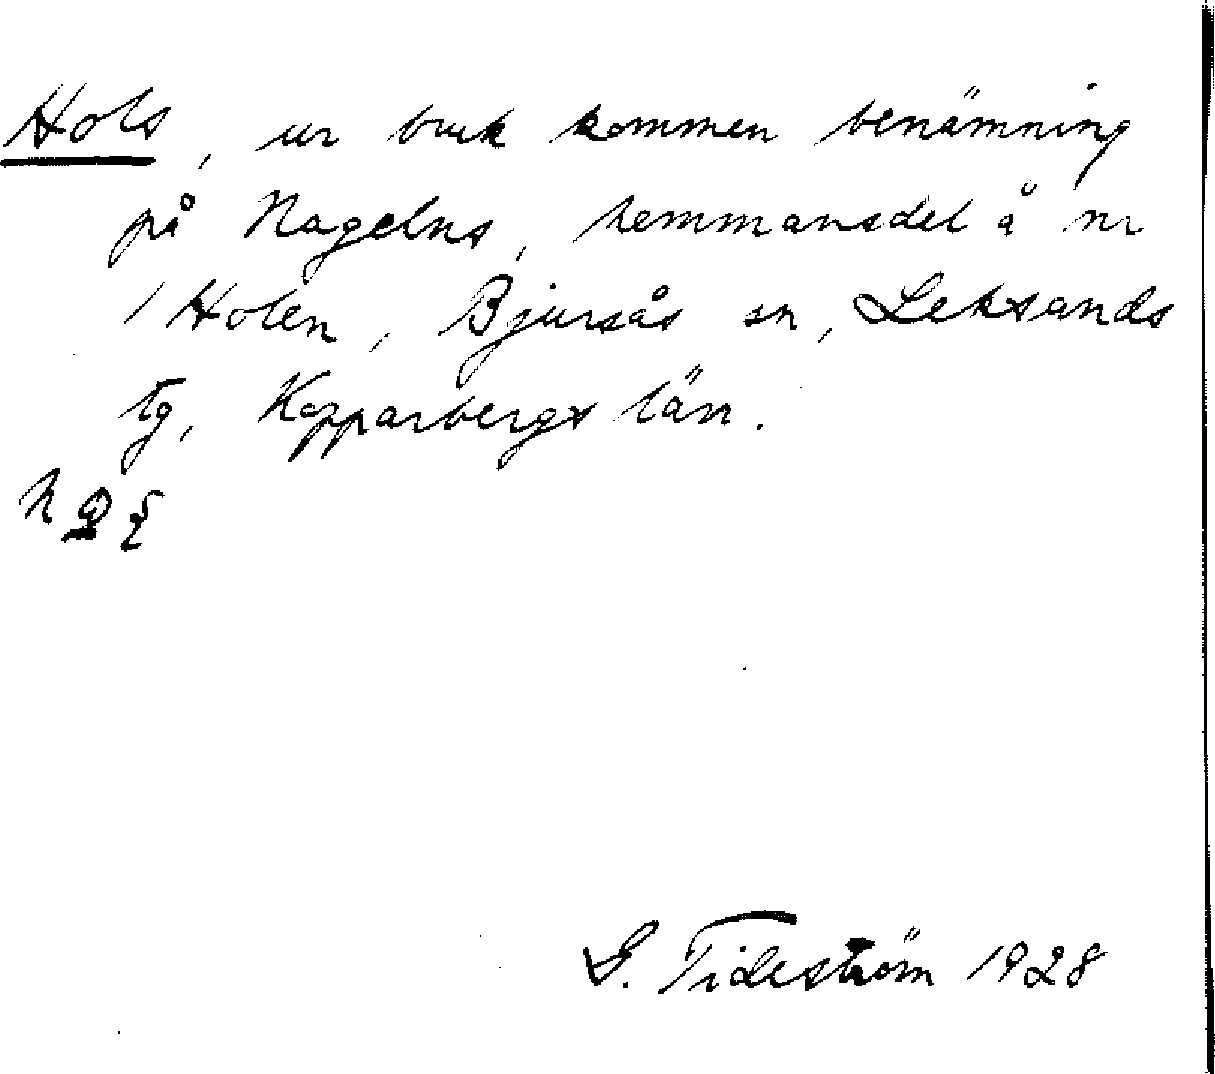 Hols, ur bruk kommen benämning
på Nagelns, hemmansdel å nr
1 Holen, Bjursås sn, Leksands
tg, Kopparbergs län.
G. Tideström 1928